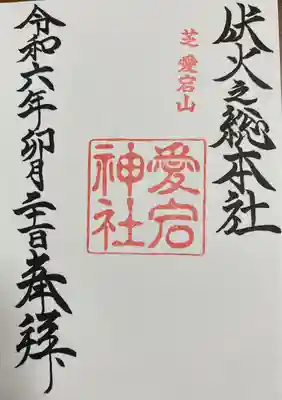 伏火之総本社
芝愛宕山
愛宕神社
令和六年卯月二十一日奉拝